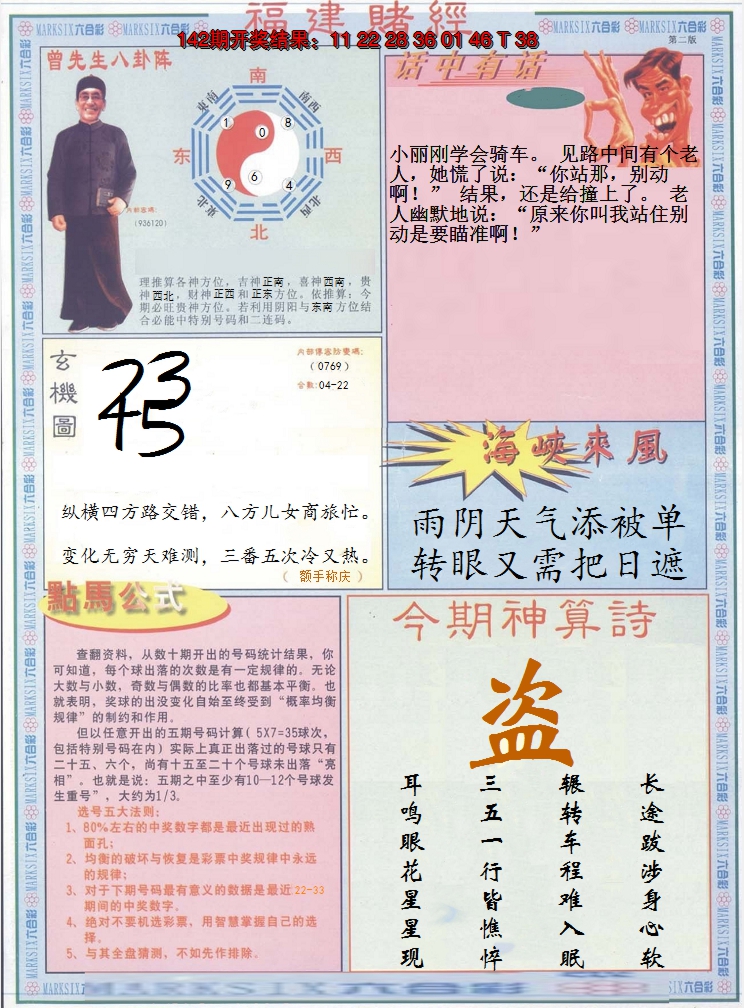 福建賭經
142期开奖结果：11 22 28 36 01 46 T 38
第二版
MARKSIX六合彩
曾先生八卦阵
南
东南
南西
东
西
东北
北西
北
1
0
8
9
6
4
内部密碼:
(936120)
理推算各神方位，吉神正南，喜神西南，贵
神西北，财神正西和正东方位。依推算：今
期必旺贵神方位。若利用阴阳与东南方位结
合必能中特别号码和二连码。
话中有话
小丽刚学会骑车。 见路中间有个老
人，她慌了说：“你站那，别动
啊！” 结果，还是给撞上了。 老
人幽默地说：“原来你叫我站住别
动是要瞄准啊！”
玄機圖
23
45
(0769)
合数:04-22
纵横四方路交错，八方儿女商旅忙。
变化无穷天难测，三番五次冷又热。
（ 额手称庆 ）
海峡來風
雨阴天气添被单
转眼又需把日遮
點馬公式
查翻资料，从数十期开出的号码统计结果，你
可知道，每个球出落的次数是有一定规律的。无论
大数与小数，奇数与偶数的比率也都基本平衡。也
就表明，奖球的出没变化自始至终受到“概率均衡
规律”的制约和作用。
但以任意开出的五期号码计算( 5X7=35球次，
包括特别号码在内) 实际上真正出落过的号球只有
二十五、六个，尚有十五至二十个号球未出落“亮
相”。也就是说：五期之中至少有10—12个号球发
生重号”，大约为1/3。
选号五大法则：
1、80%左右的中奖数字都是最近出现过的熟
面孔；
2、均衡的破坏与恢复是彩票中奖规律中永远
的规律；
3、对于下期号码最有意义的数据是最近22-33
期间的中奖数字。
4、绝对不要机选彩票，用智慧掌握自己的选
择。
5、与其全盘猜测，不如先作排除。
今期神算詩
盗
长途跋涉身心软
辗转车程难入眠
三五一行皆憔悴
耳鸣眼花星星现